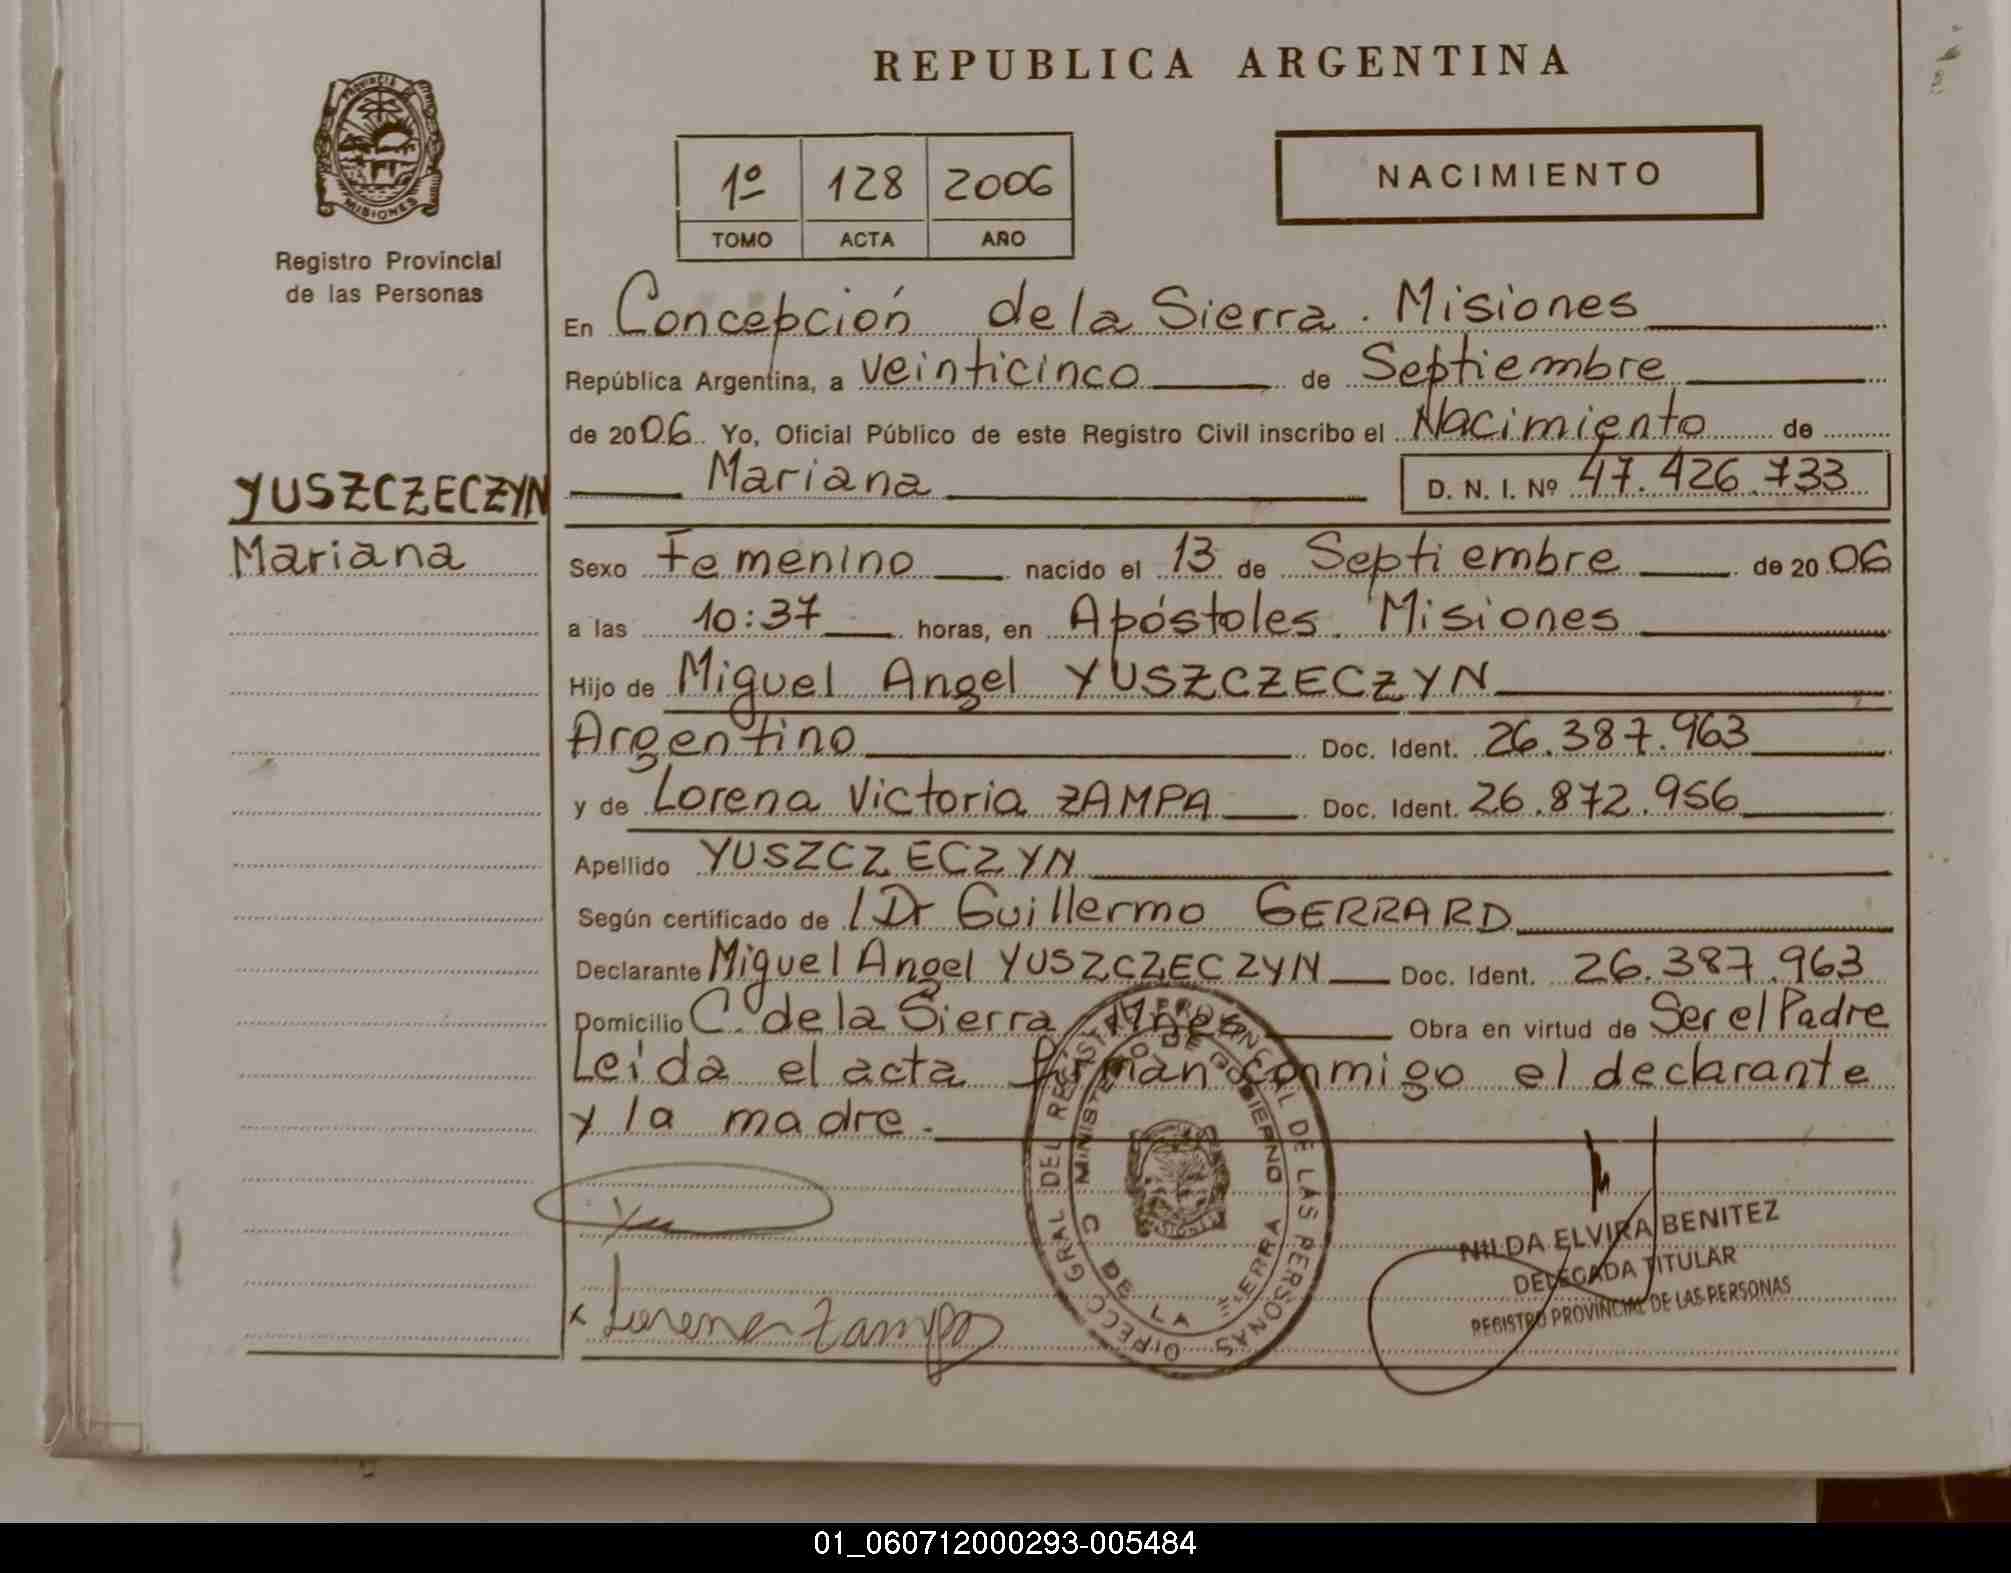 REPUBLICA ARGENTINA
PROVINCIA DE
MISIONES
Registro Provincial
de las Personas
1º 128 2006
TOMO ACTA AÑO
NACIMIENTO
En Concepción de la Sierra. Misiones
República Argentina, a veinticinco de Septiembre
de 2006. Yo, Oficial Público de este Registro Civil inscribo el Nacimiento de
Mariana D. N. I. Nº 47.426.733
YUSZCZECZYN
Mariana
Sexo Femenino nacido el 13 de Septiembre de 2006
a las 10:37 horas, en Apóstoles. Misiones
Hijo de Miguel Angel YUSZCZECZYN
Argentino Doc. Ident. 26.387.963
y de Lorena Victoria ZAMPA Doc. Ident. 26.872.956
Apellido YUSZCZECZYN
Según certificado de / Dr Guillermo GERRARD
Declarante Miguel Angel YUSZCZECZYN Doc. Ident. 26.387.963
Domicilio C. de la Sierra Mnes Obra en virtud de Ser el Padre
Leída el acta firman conmigo el declarante
y la madre.
DIRECC. GRAL DEL REGISTRO PROVINCIAL DE LAS PERSONAS
MINISTERIO DE GOBIERNO
C DE LA SIERRA
NILDA ELVIRA BENITEZ
DELEGADA TITULAR
REGISTRO PROVINCIAL DE LAS PERSONAS
x Lorena Zampa
01_060712000293-005484